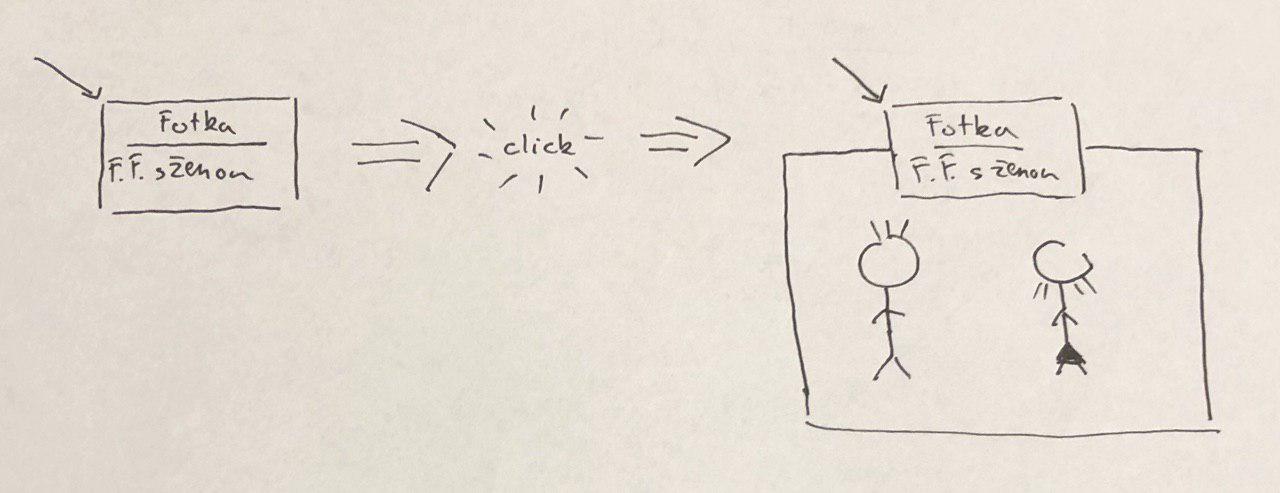 Fotka
F.F. s ženou
click
Fotka
F.F. s ženou